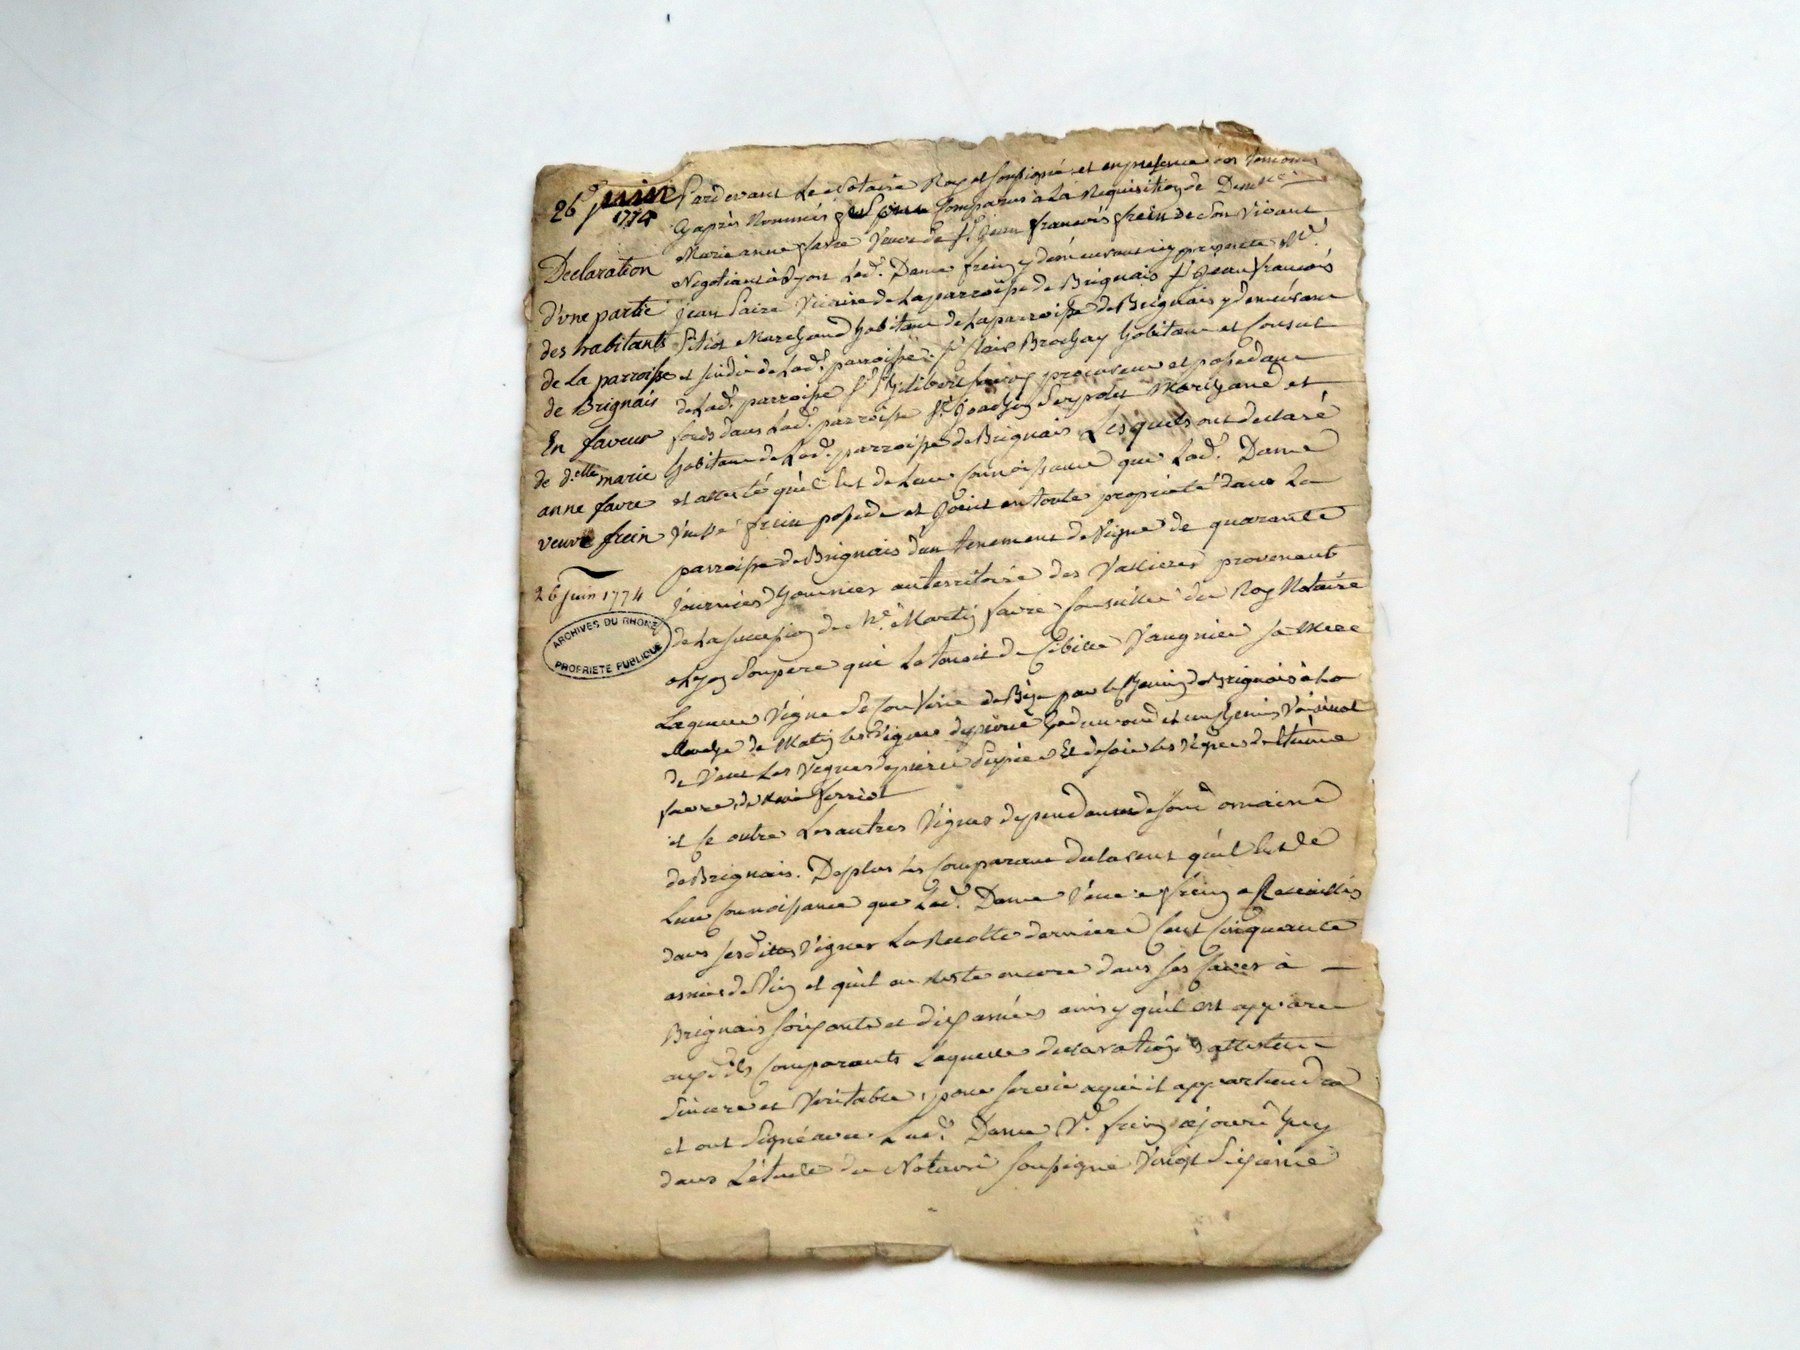 26e juin
1774
Declaration
d'une partie
des habitants
de la parroisse
de Brignais
En faveur
de d.elle marie
anne favre
veuve frein
26 juin 1774
ARCHIVES DU RHONE
PROPRIETE PUBLIQUE
Pardevant Le Notaire Royal soussigné et en presence des temoins
Cyaprès Nommés Comparus à La Requisition de
Marie anne favre Veuve de Sr. Jean françois frein de son Vivant
Negotiant à Lyon Lad.e Dame frein y demeurant icy presente
jean Vicaire de La parroisse de Brignais Sr. jean françois
Marchand habitant de La parroisse de Brignais y demeurant
et sindic de Lad.e parroisse Sr. Brochay habitant et Consul
de Lad.e parroisse Sr. procureur et possedant
fonds dans Lad.e parroisse Sr. Marchand et
habitant de Lad.e parroisse de Brignais Lesquels ont declaré
et attesté qu'il est de Leur Connoissance que Lad.e Dame
Veuve frein possede et jouit en toute proprieté dans La
parroisse de Brignais d'un tenement de Vigne de quarante
journées au territoire des Vallieres provenant
de La succession de Me. Martin favre Conseiller du Roy Notaire
a Lyon Son pere qui La tenoit de Sibille Vaugnier sa Mere
Laquelle Vigne Se Confine de Bize par le chemin de Brignais à
de Matin les Vignes de et un chemin Vicinal
de Vent Les Vignes de et de soir les Vignes
et ce outre Les autres Vignes dependantes de son domaine
de Brignais. De plus les Comparants declarent qu'il est de
Leur Connoissance que Lad.e Dame Veuve frein a Receuillis
dans sesdittes Vignes La Recolte derniere Cent Cinquante
asnées de Vin et qu'il en Reste encore dans ses Caves à
Brignais soixante et dix asnées ainsy qu'il est apparu
auxd.ts Comparants Laquelle declaration ils attestent
Sincere et Veritable, pour servir a qui il appartiendra
et ont signé avec Lad.e Dame Ve. frein cejourd'huy
dans L'étude du Notaire soussigné Vingt Sixieme